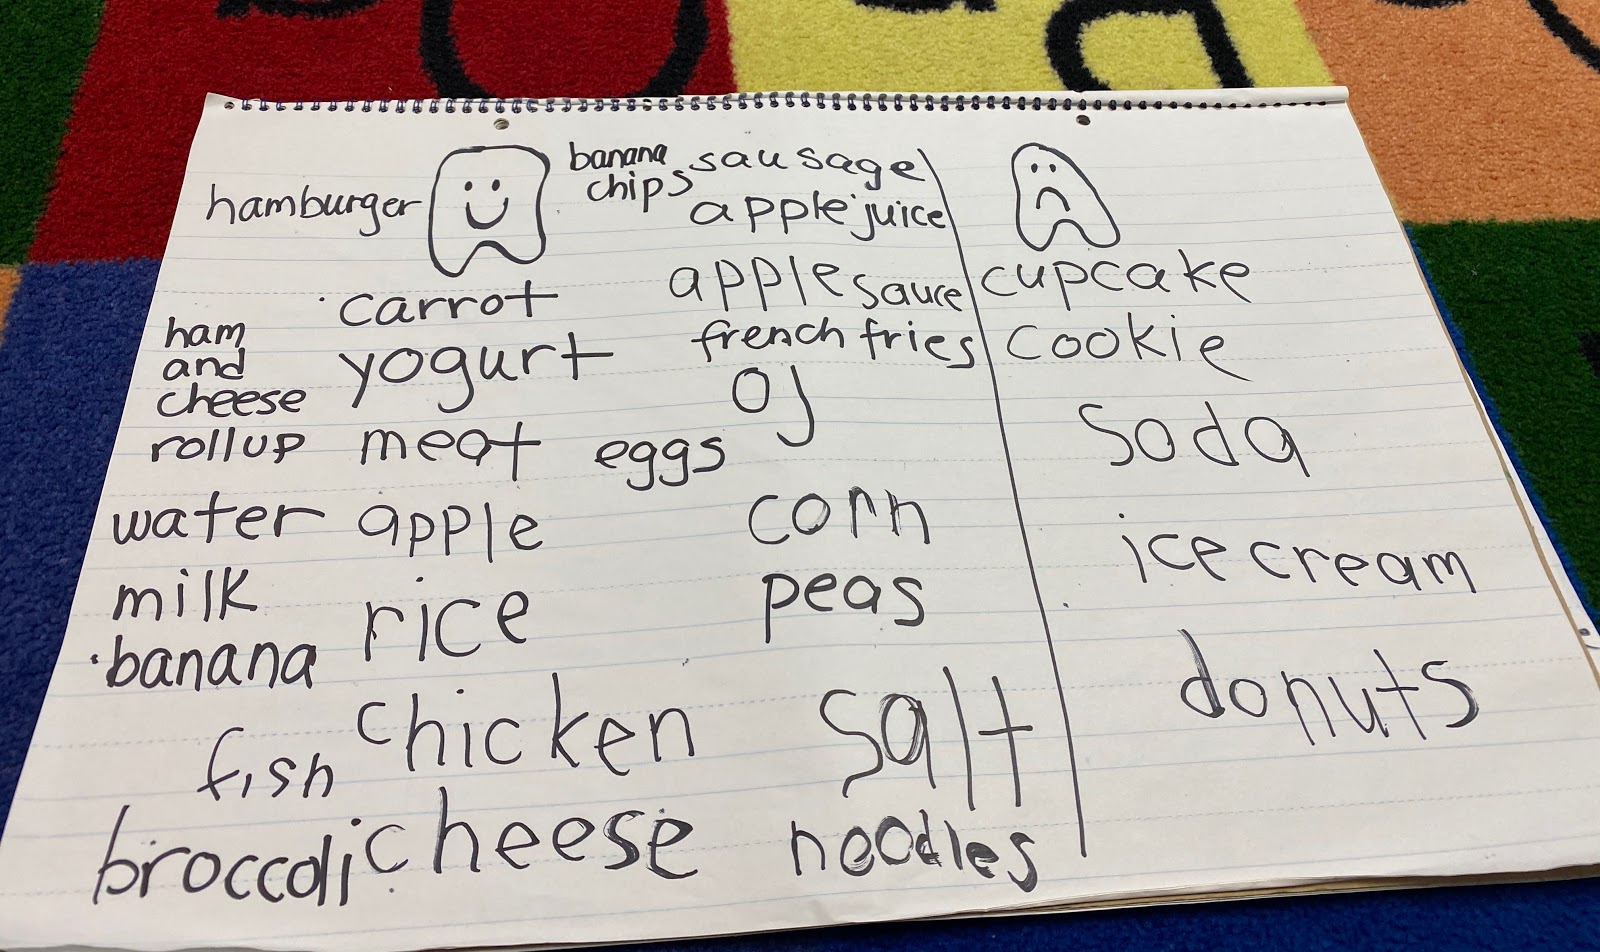 hamburger
banana
chips
sausage
apple juice
carrot
apple sauce
ham
and
cheese
rollup
yogurt
french fries
OJ
meat
eggs
water
apple
corn
milk
rice
peas
banana
chicken
salt
fish
broccoli
cheese
noodles
cupcake
cookie
soda
ice cream
donuts